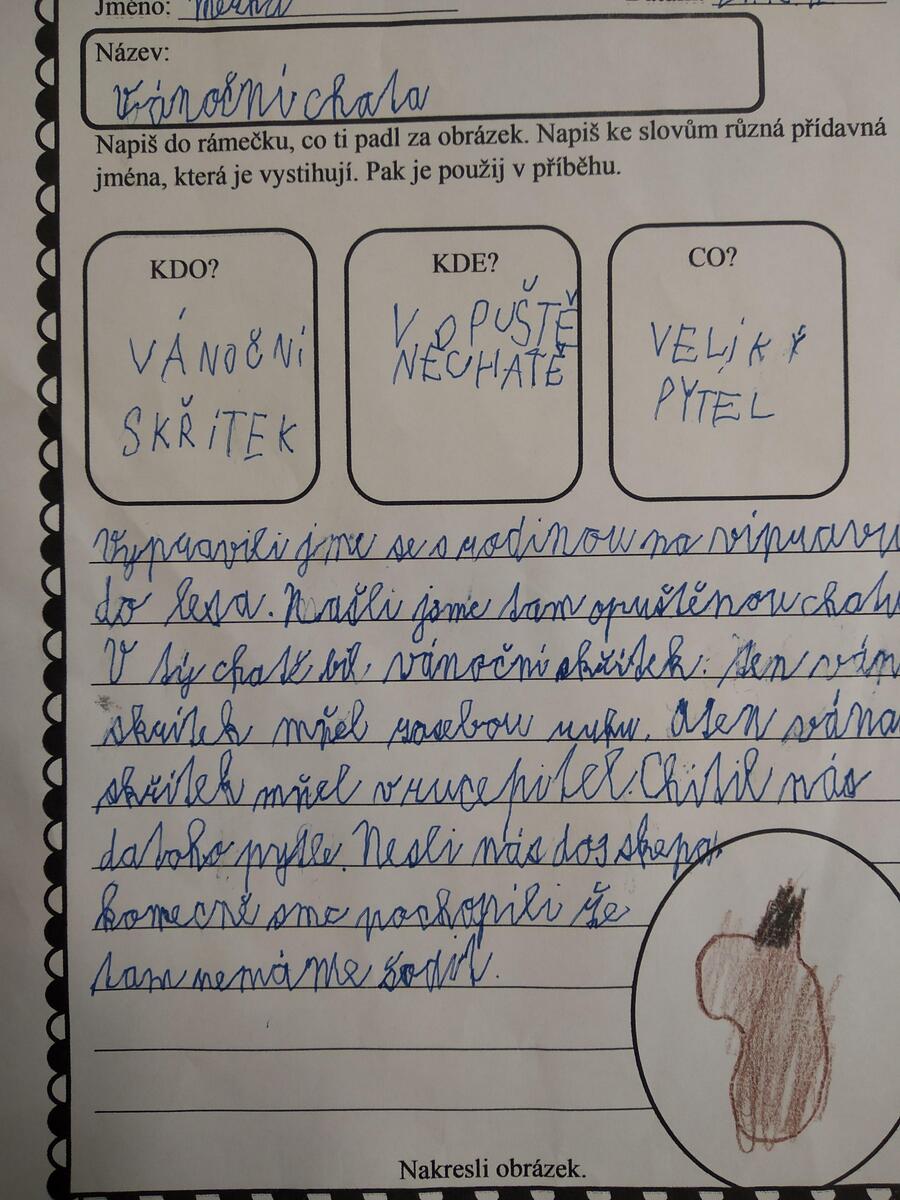 Jméno:
Název:
Vánoční chata
Napiš do rámečku, co ti padl za obrázek. Napiš ke slovům různá přídavná
jména, která je vystihují. Pak je použij v příběhu.
KDO? KDE? CO?
VÁNOČNí V OPUŠTĚ VELIKÝ
SKŘíTEK NÉCHATĚ PYTEL
Vypravili jme se s rodinou na vípravu
do lesa. Našli jsme tam opuštěnou chatu
V tý chatě bil vánoční skřítek. Ten ván
skřítek mňel sasebou ruku. Aten vána
skřítek mňel v ruce pitel. Chitil nás
datoho pytle. Nesli nás do
konečně sme pochopili že
tam nemáme
Nakresli obrázek.